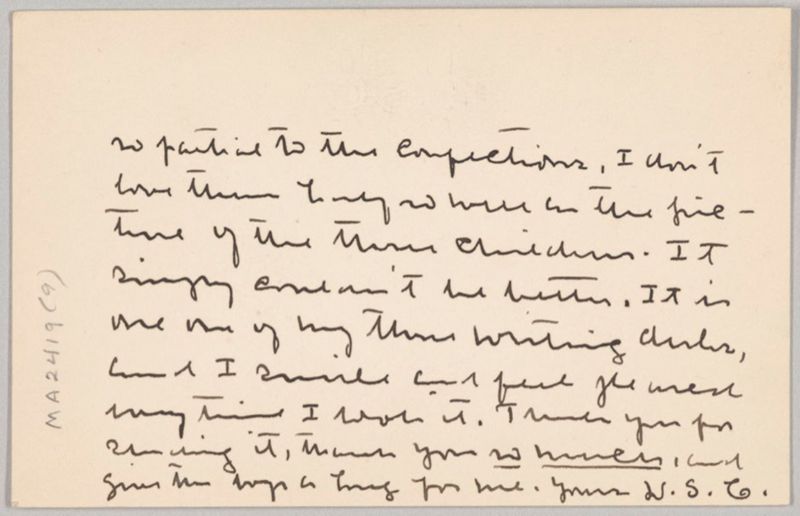 so partial to the confections, I don't
love them half so well as the pic-
ture of the three children. It
simply couldn't be better. It is
one one of my three writing desks,
and I smile and feel pleased
every time I look at it. Thank you for
sending it, thank you so much, and
give the boys a hug for me. Yours W. S. C.
MA2419(9)